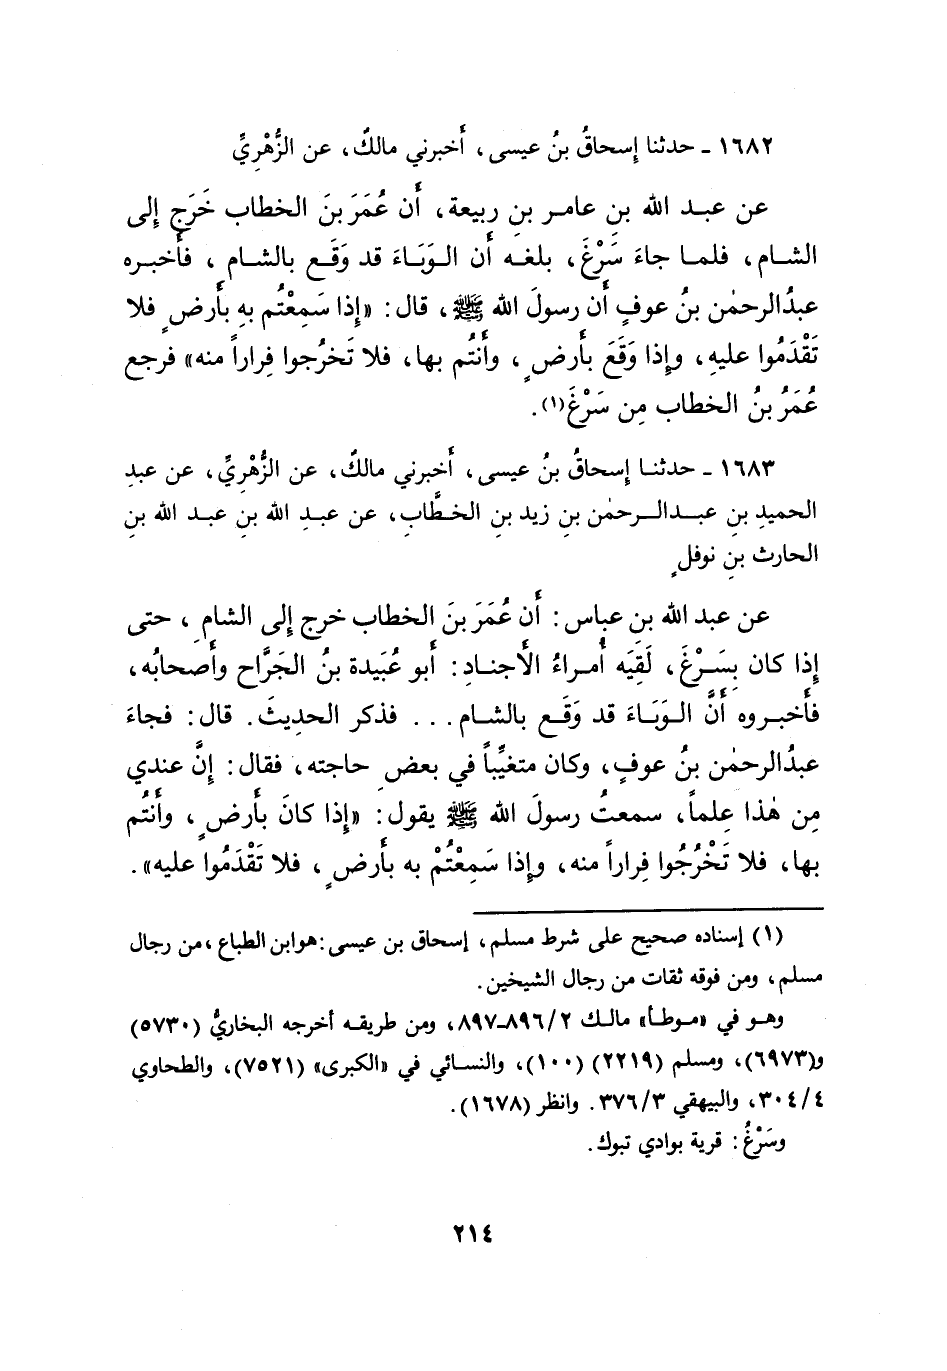 ١٦٨٢ - حدثنا إسحاقُ بنُ عيسى، أَخبرني مالكٌ، عن الزُّهْرِيِّ
عن عبد الله بنِ عامر بنِ ربيعة، أَن عُمَرَ بنَ الخطاب خَرَج إِلى
الشام، فلما جاءَ سَرْغَ، بلغه أَن الوَبَاءَ قد وَقَع بالشام، فأَخبره
عبدُالرحمٰن بنُ عوفٍ أَن رسولَ الله ﷺ، قال: «إِذا سَمِعْتُم بهِ بأَرضٍ فلا
تَقْدَمُوا عليهِ، وإِذا وَقَعَ بأَرضٍ، وأَنتُم بها، فلا تَخرُجوا فِراراً منه» فرجع
عُمَرُ بنُ الخطاب مِن سَرْغَ(١).
١٦٨٣ - حدثنا إسحاقُ بنُ عيسى، أَخبرني مالكٌ، عن الزُّهْرِيِّ، عن عبدِ
الحميدِ بنِ عبدالرحمٰن بنِ زيد بنِ الخطَّاب، عن عبدِ الله بنِ عبد الله بنِ
الحارث بنِ نوفلٍ
عن عبد الله بن عباس: أَن عُمَرَ بنَ الخطاب خرج إِلى الشامِ، حتى
إِذا كان بِسَرْغَ، لَقِيَه أُمراءُ الأَجنادِ: أَبو عُبَيدة بنُ الجَرَّاح وأَصحابُه،
فأَخبروه أَنَّ الوَبَاءَ قد وَقَع بالشام... فذكر الحديثَ. قال: فجاءَ
عبدُالرحمٰن بنُ عوفٍ، وكان متغيِّباً في بعضِ حاجته، فقال: إِنَّ عندي
مِن هٰذا عِلماً، سمعتُ رسولَ الله ﷺ يقول: «إِذا كانَ بأَرضٍ، وأَنتُم
بها، فلا تَخْرُجُوا فِراراً منه، وإِذا سَمِعْتُمْ به بأَرضٍ، فلا تَقْدَمُوا عليه».
(١) إسناده صحيح على شرط مسلم، إسحاق بن عيسى: هوابن الطباع، من رجال
مسلم، ومن فوقه ثقات من رجال الشيخين.
وهو في «موطأ» مالك ٢/ ٨٩٦-٨٩٧، ومن طريقه أخرجه البخاريُّ (٥٧٣٠)
و(٦٩٧٣)، ومسلم (٢٢١٩) (١٠٠)، والنسائي في «الكبرى» (٧٥٢١)، والطحاوي
٤/ ٣٠٤، والبيهقي ٣/ ٣٧٦. وانظر (١٦٧٨).
وسَرْغُ: قرية بوادي تبوك.
٢١٤